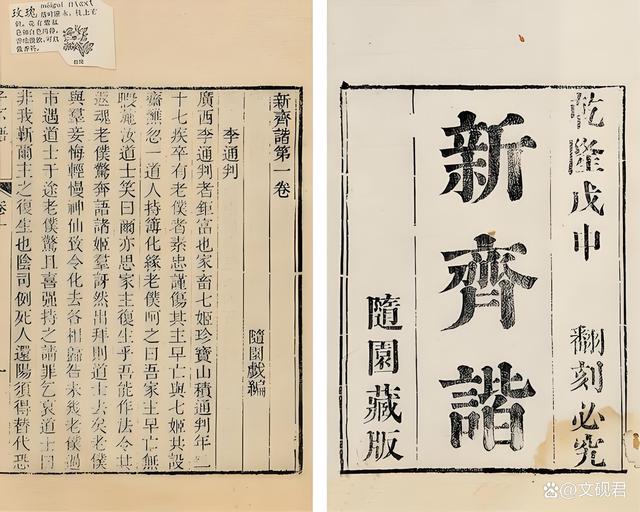 乾隆戊申
翻刻必究
新齊諧
隨園藏版
新齊諧第一卷
隨園戲編
李通判
廣西李通判者鉅富也家畜七姬珍寶山積通判年二
十七疾卒有老僕者素忠謹傷其主早亡與七姬共設
齋醮忽一道人持簿化緣老僕呵之曰吾家主早亡無
暇施汝道士笑曰爾亦思家主復生乎吾能作法令其
返魂老僕驚奔語諸姬羣訝然出拜則道士去矣老僕
與羣妾悔輕慢神仙致令化去各相歸咎未幾老僕過
市遇道士于途老僕驚且喜强持之請罪乞哀道士曰
非我靳爾主之復生也陰司例死人還陽須得替代恐
子不語
卷一
玫瑰 méiguī
落叶灌木，枝上有
刺。花有紫红
色和白色两种，
香味很浓，可以
做香料。
文砚君